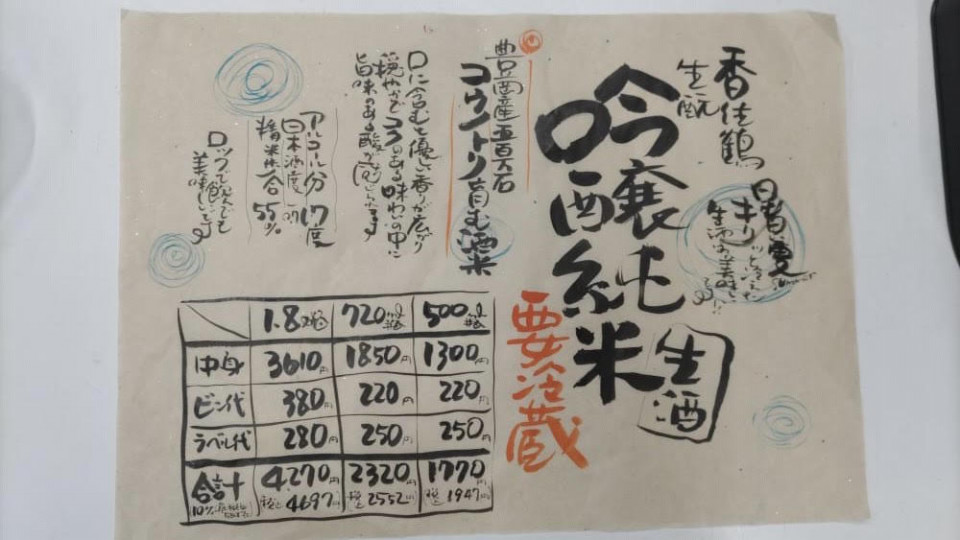 香住鶴
生酛
吟醸純米
生酒
要冷蔵
暑い夏
キリッと冷えた
生酒が美味しい
豊岡産五百万石
コウノトリ育む酒米
口に含むと優しい香りが広がり
穏やかでコクのある味わいの中に
旨味のある酸が
アルコール分 17度
日本酒度
精米歩合 55%
ロックで飲んでも
美味しいです
1.8 720 500
中身 3610円 1850円 1300円
ビン代 380円 220円 220円
ラベル代 280円 250円 250円
合計 4270円 2320円 1770円
10% 税込 4697円 税込 2552円 税込 1947円